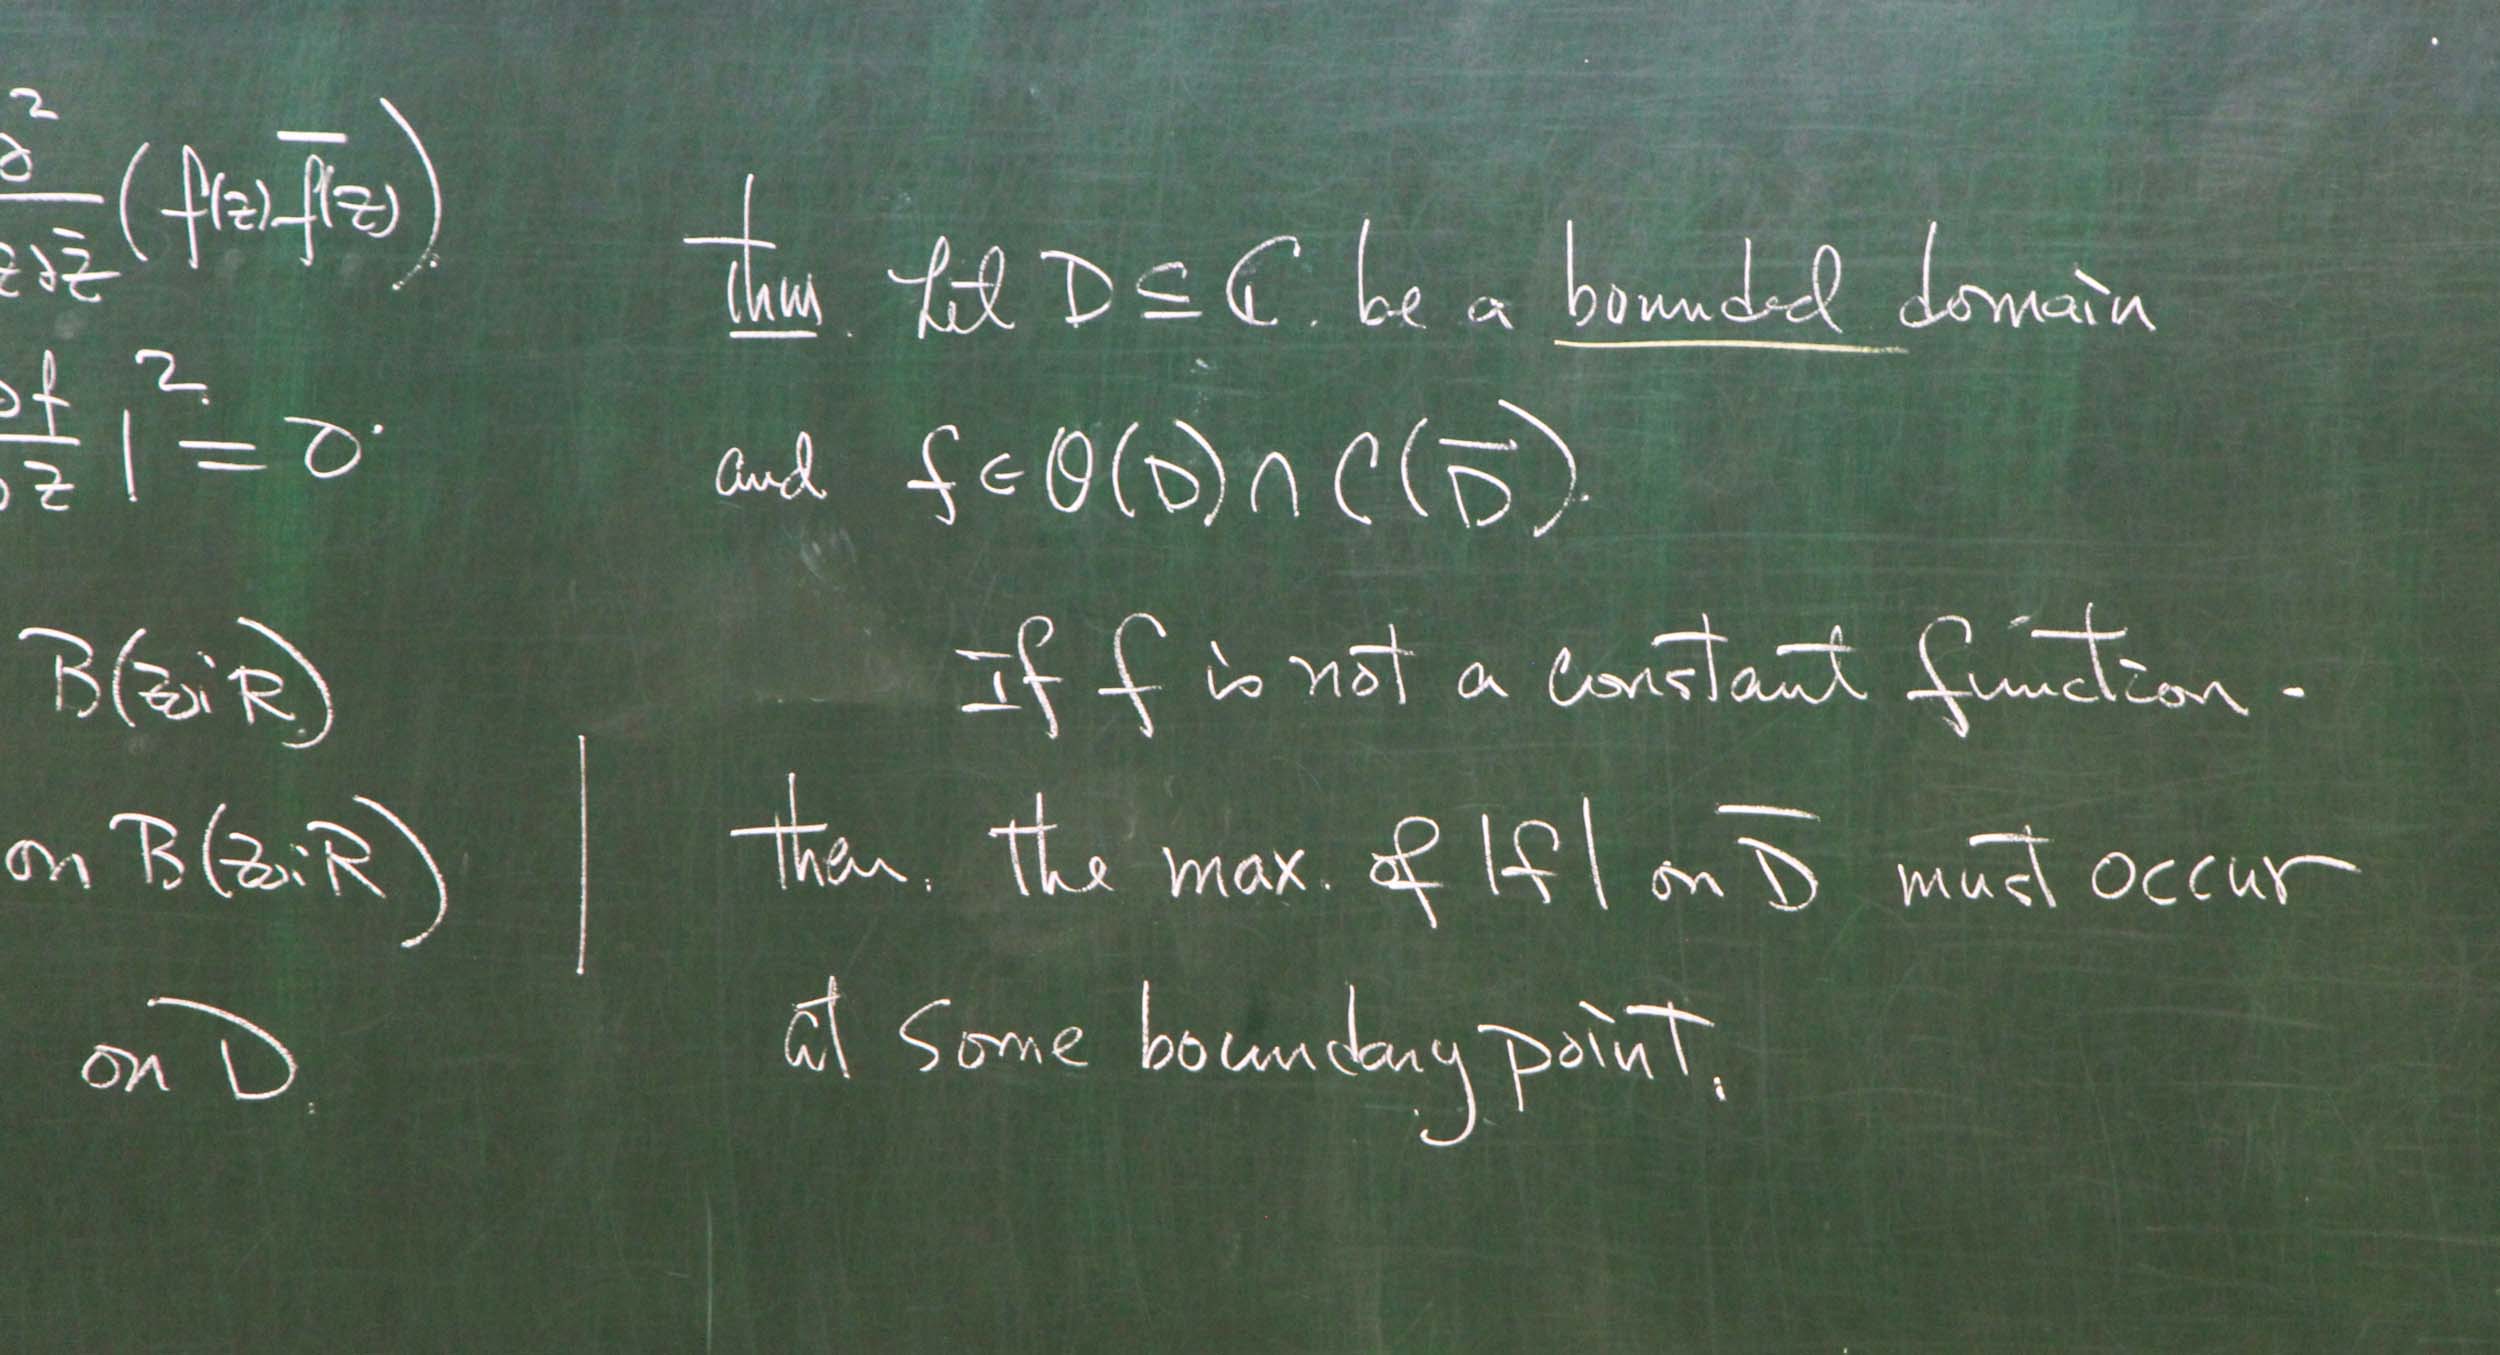 ∂²
/∂z∂z̄ (f(z) \overline{f(z)}).
|∂f/∂z|² = 0.
B(z₀; R)
on B(z₀; R)
on D.
Thm. Let D ⊆ ℂ. be a bounded domain
and f ∈ O(D) ∩ C(D̄).
If f is not a constant function.
then. the max. of |f| on D̄ must occur
at some boundary point.